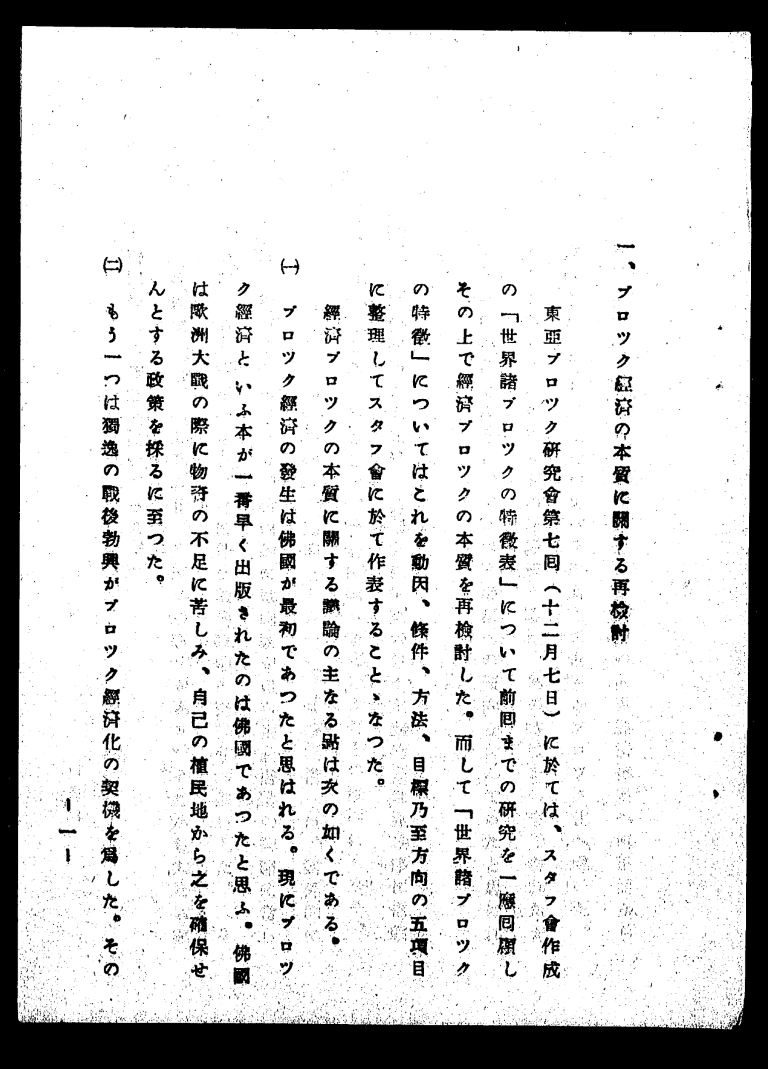 一、ブロツク經濟の本質に關する再檢討
東亞ブロツク研究會第七回（十二月七日）に於ては、スタフ會作成
の「世界諸ブロツクの特徴表」について前回までの研究を一應回顧し
その上で經濟ブロツクの本質を再檢討した。而して「世界諸ブロツク
の特徴」についてはこれを動因、條件、方法、目標乃至方向の五項目
に整理してスタフ會に於て作表することゝなつた。
經濟ブロツクの本質に關する議論の主なる點は次の如くである。
㈠ ブロツク經濟の發生は佛國が最初であつたと思はれる。現にブロツ
ク經濟といふ本が一番早く出版されたのは佛國であつたと思ふ。佛國
は歐洲大戰の際に物資の不足に苦しみ、自己の植民地から之を確保せ
んとする政策を採るに至つた。
㈡ もう一つは獨逸の戰後勃興がブロツク經濟化の契機を爲した。その
—1—